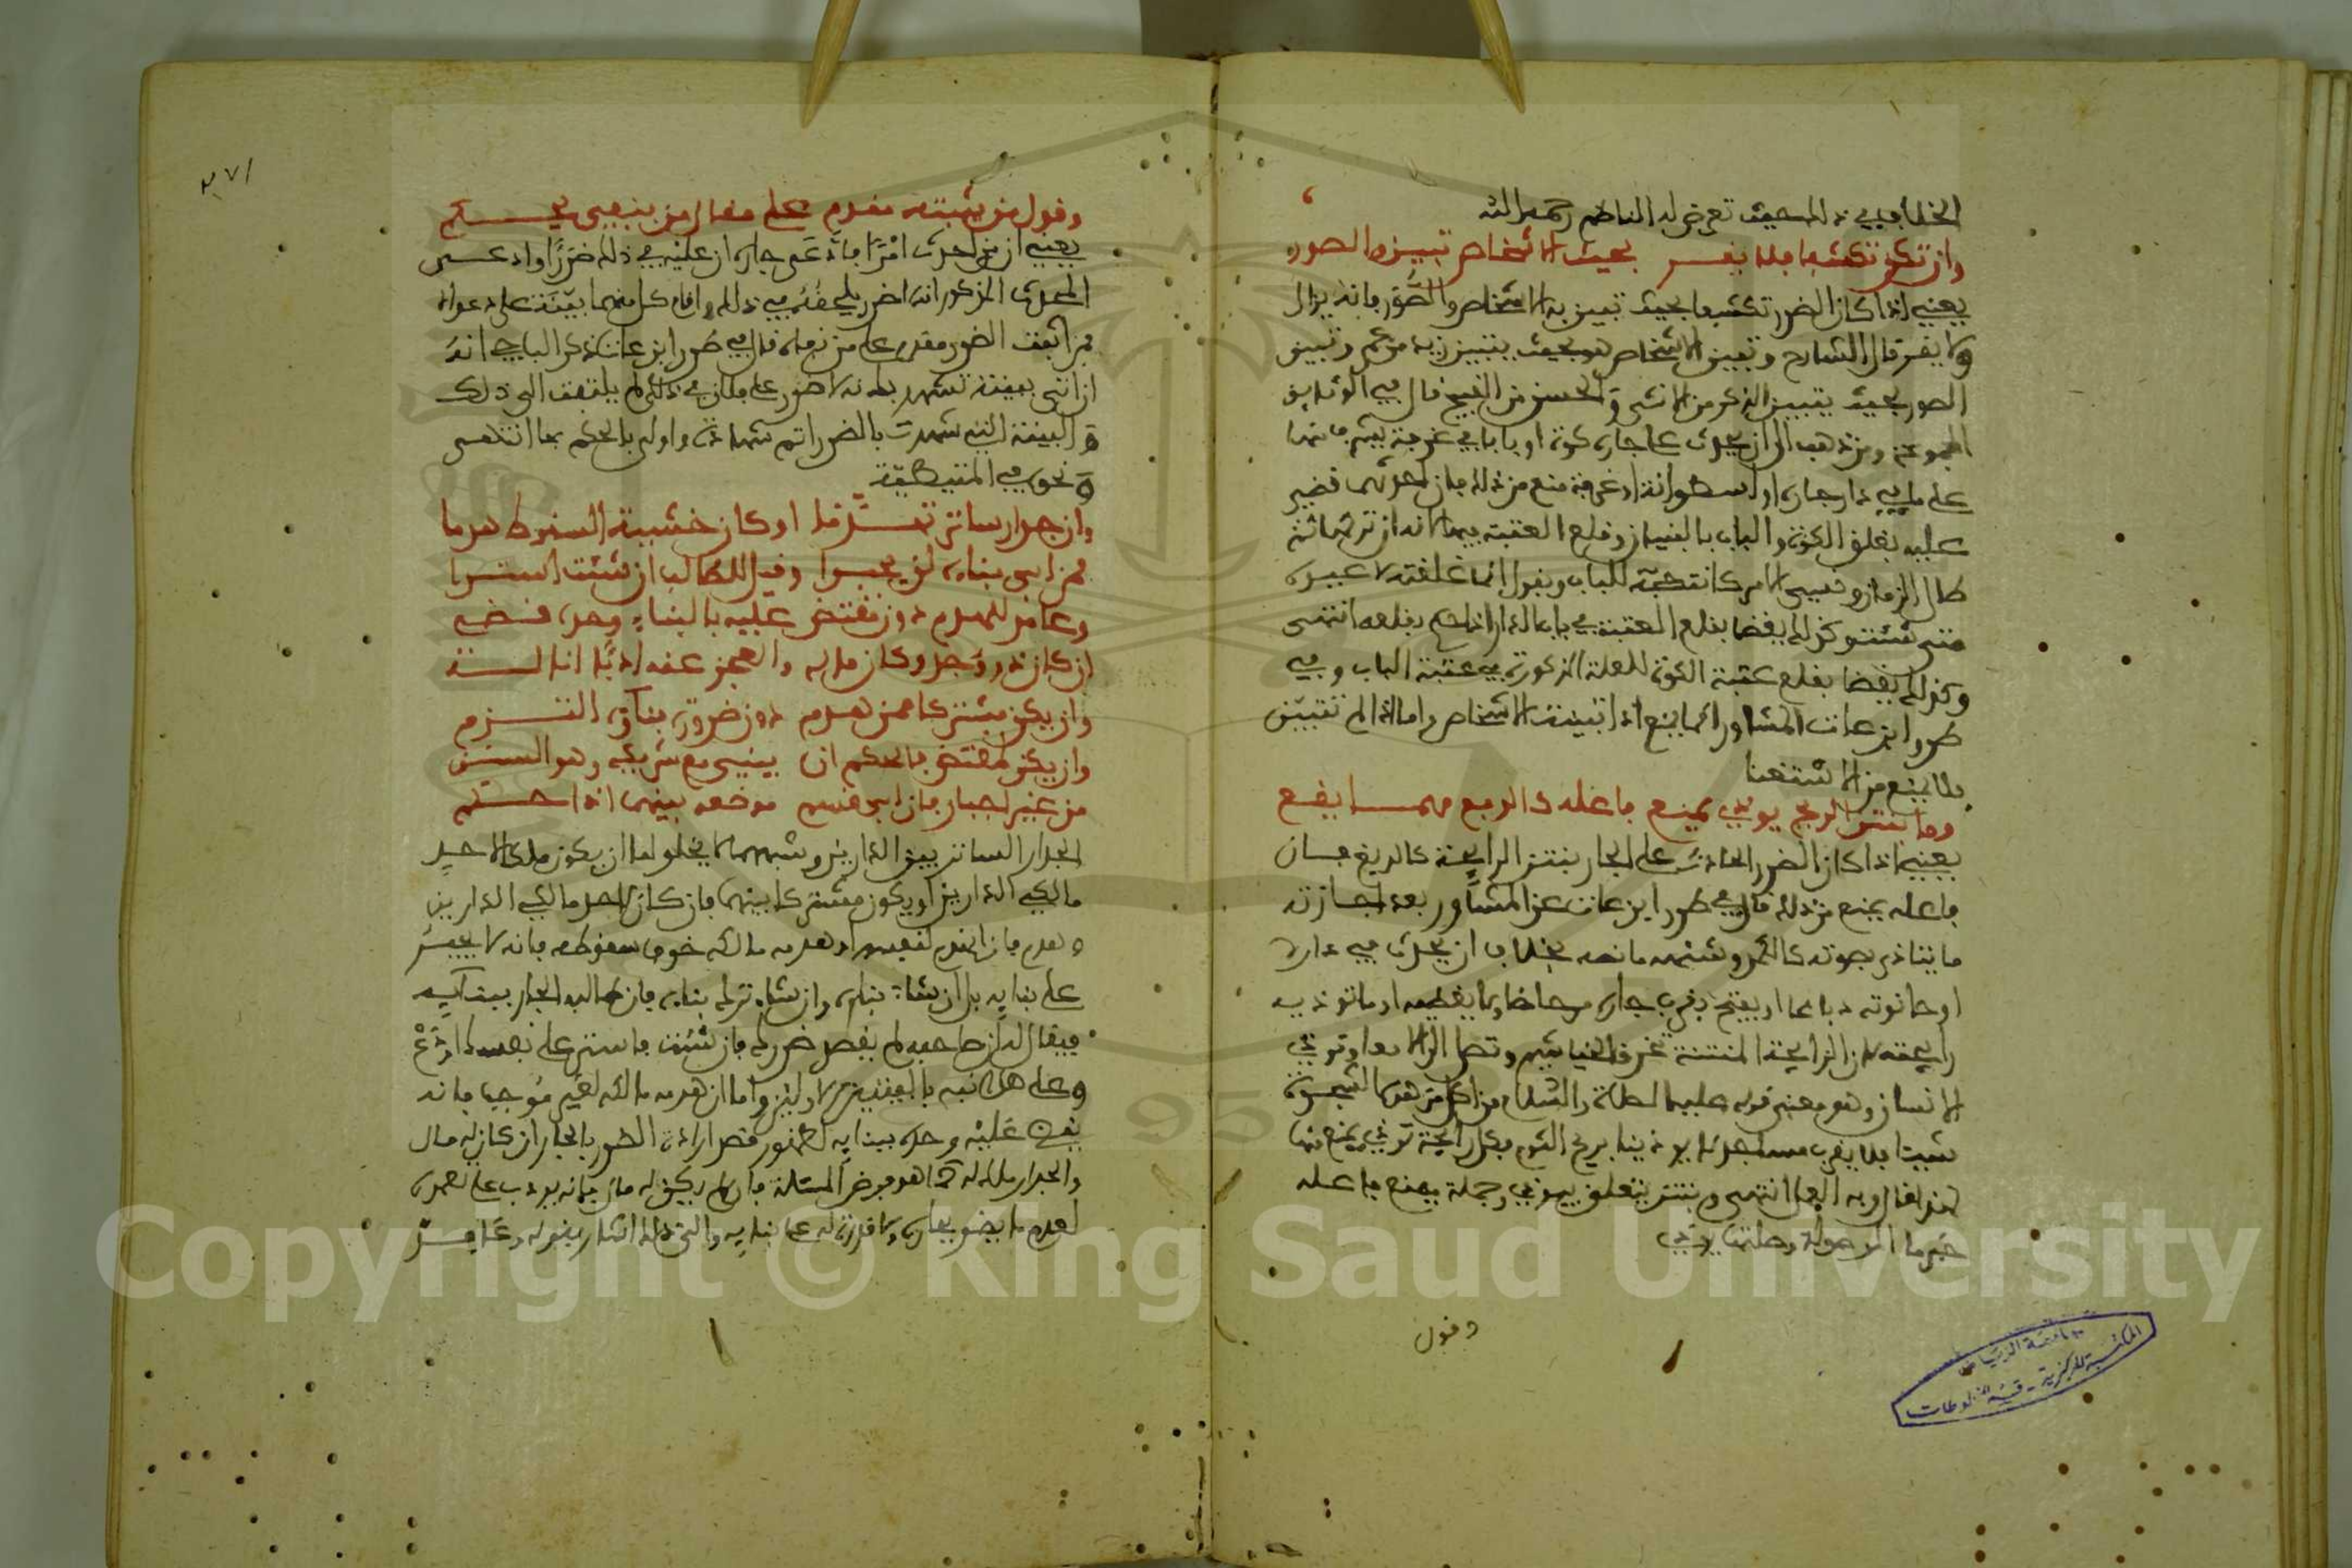 الخلاف في ذا المبحث تعرض له الناظم رحمه الله
وان تكن تكشفا فلا يقر بحيث الاشخاص تبين والصور
يعني اذا كان الضرر تكشفا بحيث تبين به الاشخاص والصور فانه يزال
ولا يقر قال الشارح وتبين الاشخاص هو بحيث يتبين زيد من عمر وتبين
الصور بحيث يتبين الذكر من الانثى والحسن من القبيح قال في الوثايق
المجموعة ومن ذهب الى ان يحدث على جاره كوة او بابا في غرفة يشرف منها
على ما في دار جاره او اسطوانه او غرفة منع من ذلك فان احدثها قضي
عليه بغلق الكوة والباب بالبنيان وقلع العتبة منها لانه ان ترك العتبة
طال الزمان ونسي الامر كانت حجة للباب ويقول انما غلقته لاعيده
متى شئت وكذلك يقضا بقلع العتبة في باب الدار اذا حكم بقلعه انتهى
وكذلك يقضا بقلع عتبة الكوة للعلة المذكورة في عتبة الباب وفي
طرر ابن عات المشاور انما يمنع اذا تبينت الاشخاص واما اذا لم تتبين
فلا يمنع من الاستغنا
وما بنتن الريح يوذي يمنع فاعله كالدبغ مهما يقع
يعني اذا كان الضرر الحادث على الجار بنتن الرايحة كالدبغ فان
فاعله يمنع من ذلك قال في طرر ابن عات عن المشاور بعد اجازته
ما يتاذى بصوته كالكمد وشبهه ما نصه بخلاف ان يحدث في داره
او حانوته دباغا او يفتح بقرب جاره مرحاضا ولا يغطيه او ما توذيه
رايحته لان الرايحة المنتنة تخرق الخياشيم وتصل الى الامعا وتوذي
الانسان وهو معنى قوله عليه الصلاة والسلام من اكل من هذه الشجرة
شيئا فلا يقرب مسجدنا يوذينا بريح الثوم فكل رايحة توذي يمنع منها
لهذا قال وبه العمل انتهى وبنتن يتعلق بيوذي وجملة يمنع فاعله
خبر ما الموصولة وصلتها يوذي
وقول
٣٧١
وقول من يثبته مقدم على مقال من بنفي يحكم
يعني ان من احدث امرا فادعى جاره ان عليه في ذلك ضررا وادعى
المحدث المذكور انه لا ضرر يلحقه في ذلك واقام كل منهما بينة على دعواه
فمن اثبت الضرر مقدم على من نفاه قال في طرر ابن عات ذكر الباجي انه
ان اتى ببينة تشهد بانه لا ضرر على فلان في ذلك لم يلتفت الى ذلك
والبينة التي شهدت بالضرر اتم شهادة واولى بالحكم بها انتهى
ونحوه في المتيطية
وان جدار ساتر تهدما او كان خشية السقوط هدما
فمن ابى بناءه لن يجبرا وقيل للطالب ان شئت استرا
وعامد للهدم دون مقتض عليه بالبناء وحده قضي
ان كان ذا وجد وكان ماله والعجز عنه ادبا اناله
وان يكن مشتركا فمن هدم دون ضرورة بناءه التزم
وان يكن لمقتض فالحكم ان يبني مع شريكه وهو السنن
من غير اجبار فان ابى قسم موضعه بينهما اذا حكم
الجدار الساتر بين الدارين وشبههما لا يخلو اما ان يكون ملكا لاحد
مالكي الدارين او يكون مشتركا بينهما فان كان لاحد مالكي الدارين
وهدم فان انهدم لنفسه او هدمه مالكه خوف سقوطه فانه لا يجبر
على بنايه بل ان شاء بناه وان شاء ترك بناءه فان طالبه الجار ببنايه
فيقال له ان صاحبه لم يقصد ضررك فان شئت فاستر على نفسك او دع
وعلى هذا نبه بالبيتين الاولين واما ان هدمه مالكه لغير موجب فانه
يقضى عليه وحده ببنايه لظهور قصد اراءة الضرر بالجار ان كان له مال
والجدار ملك له كما هو موضع المسئلة فان لم يكن له مال فانه يودب على تعمده
لهدم ما يضر بجاره ولا قدرة له على بنايه والى ذلك اشار بقوله وعامد